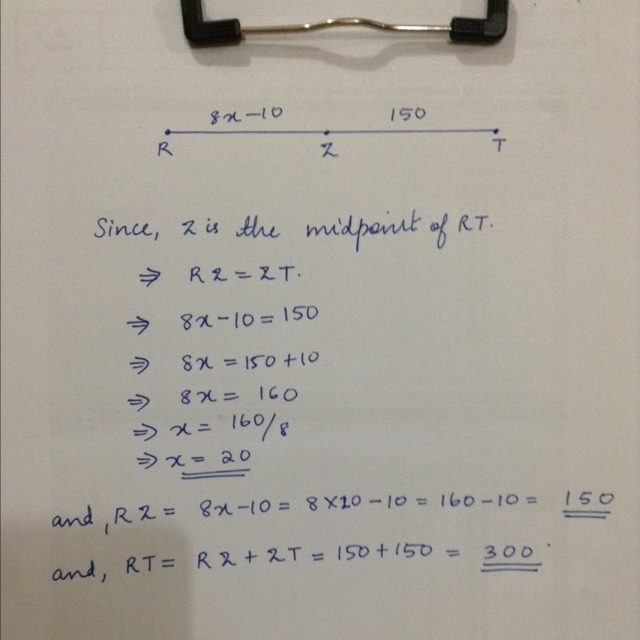 8x-10 150
R Z T
Since, Z is the midpoint of RT.
⇒ RZ = ZT.
⇒ 8x-10 = 150
⇒ 8x = 150+10
⇒ 8x = 160
⇒ x = 160/8
⇒ x = 20
and, RZ = 8x-10 = 8×20-10 = 160-10 = 150
and, RT = RZ + ZT = 150+150 = 300